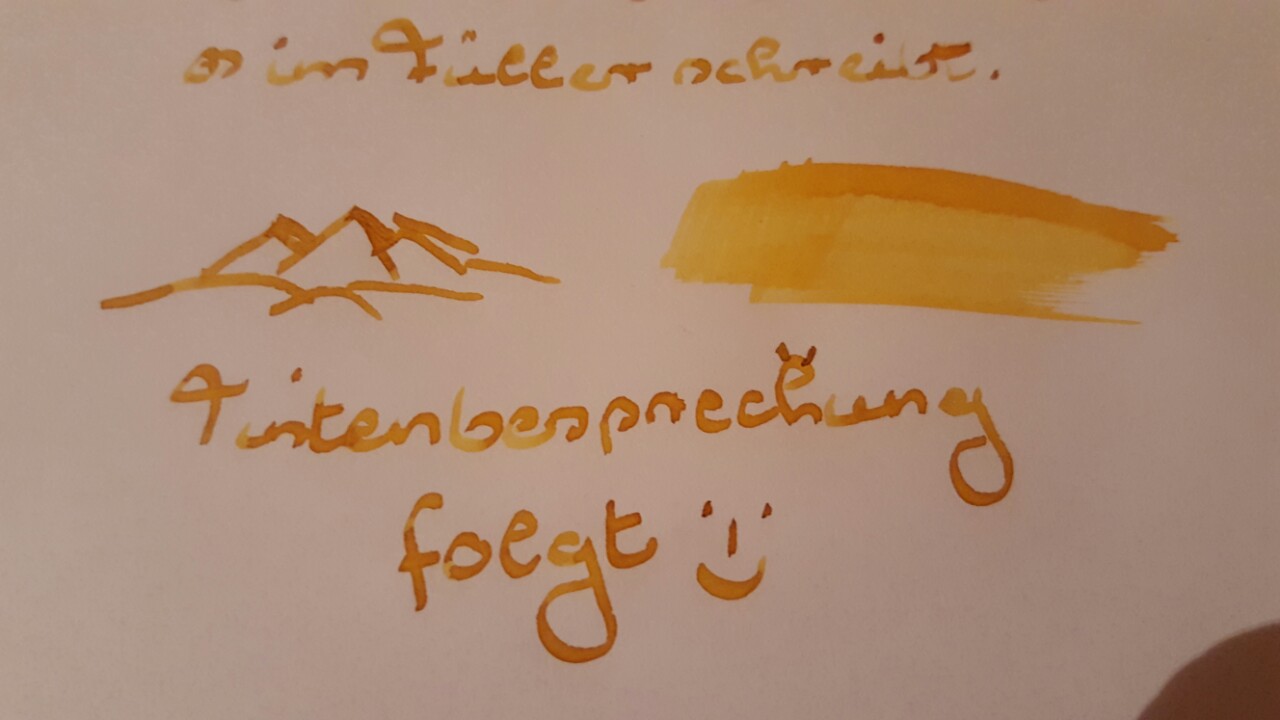 es im Füller schreibt.
Tintenbesprechung
folgt